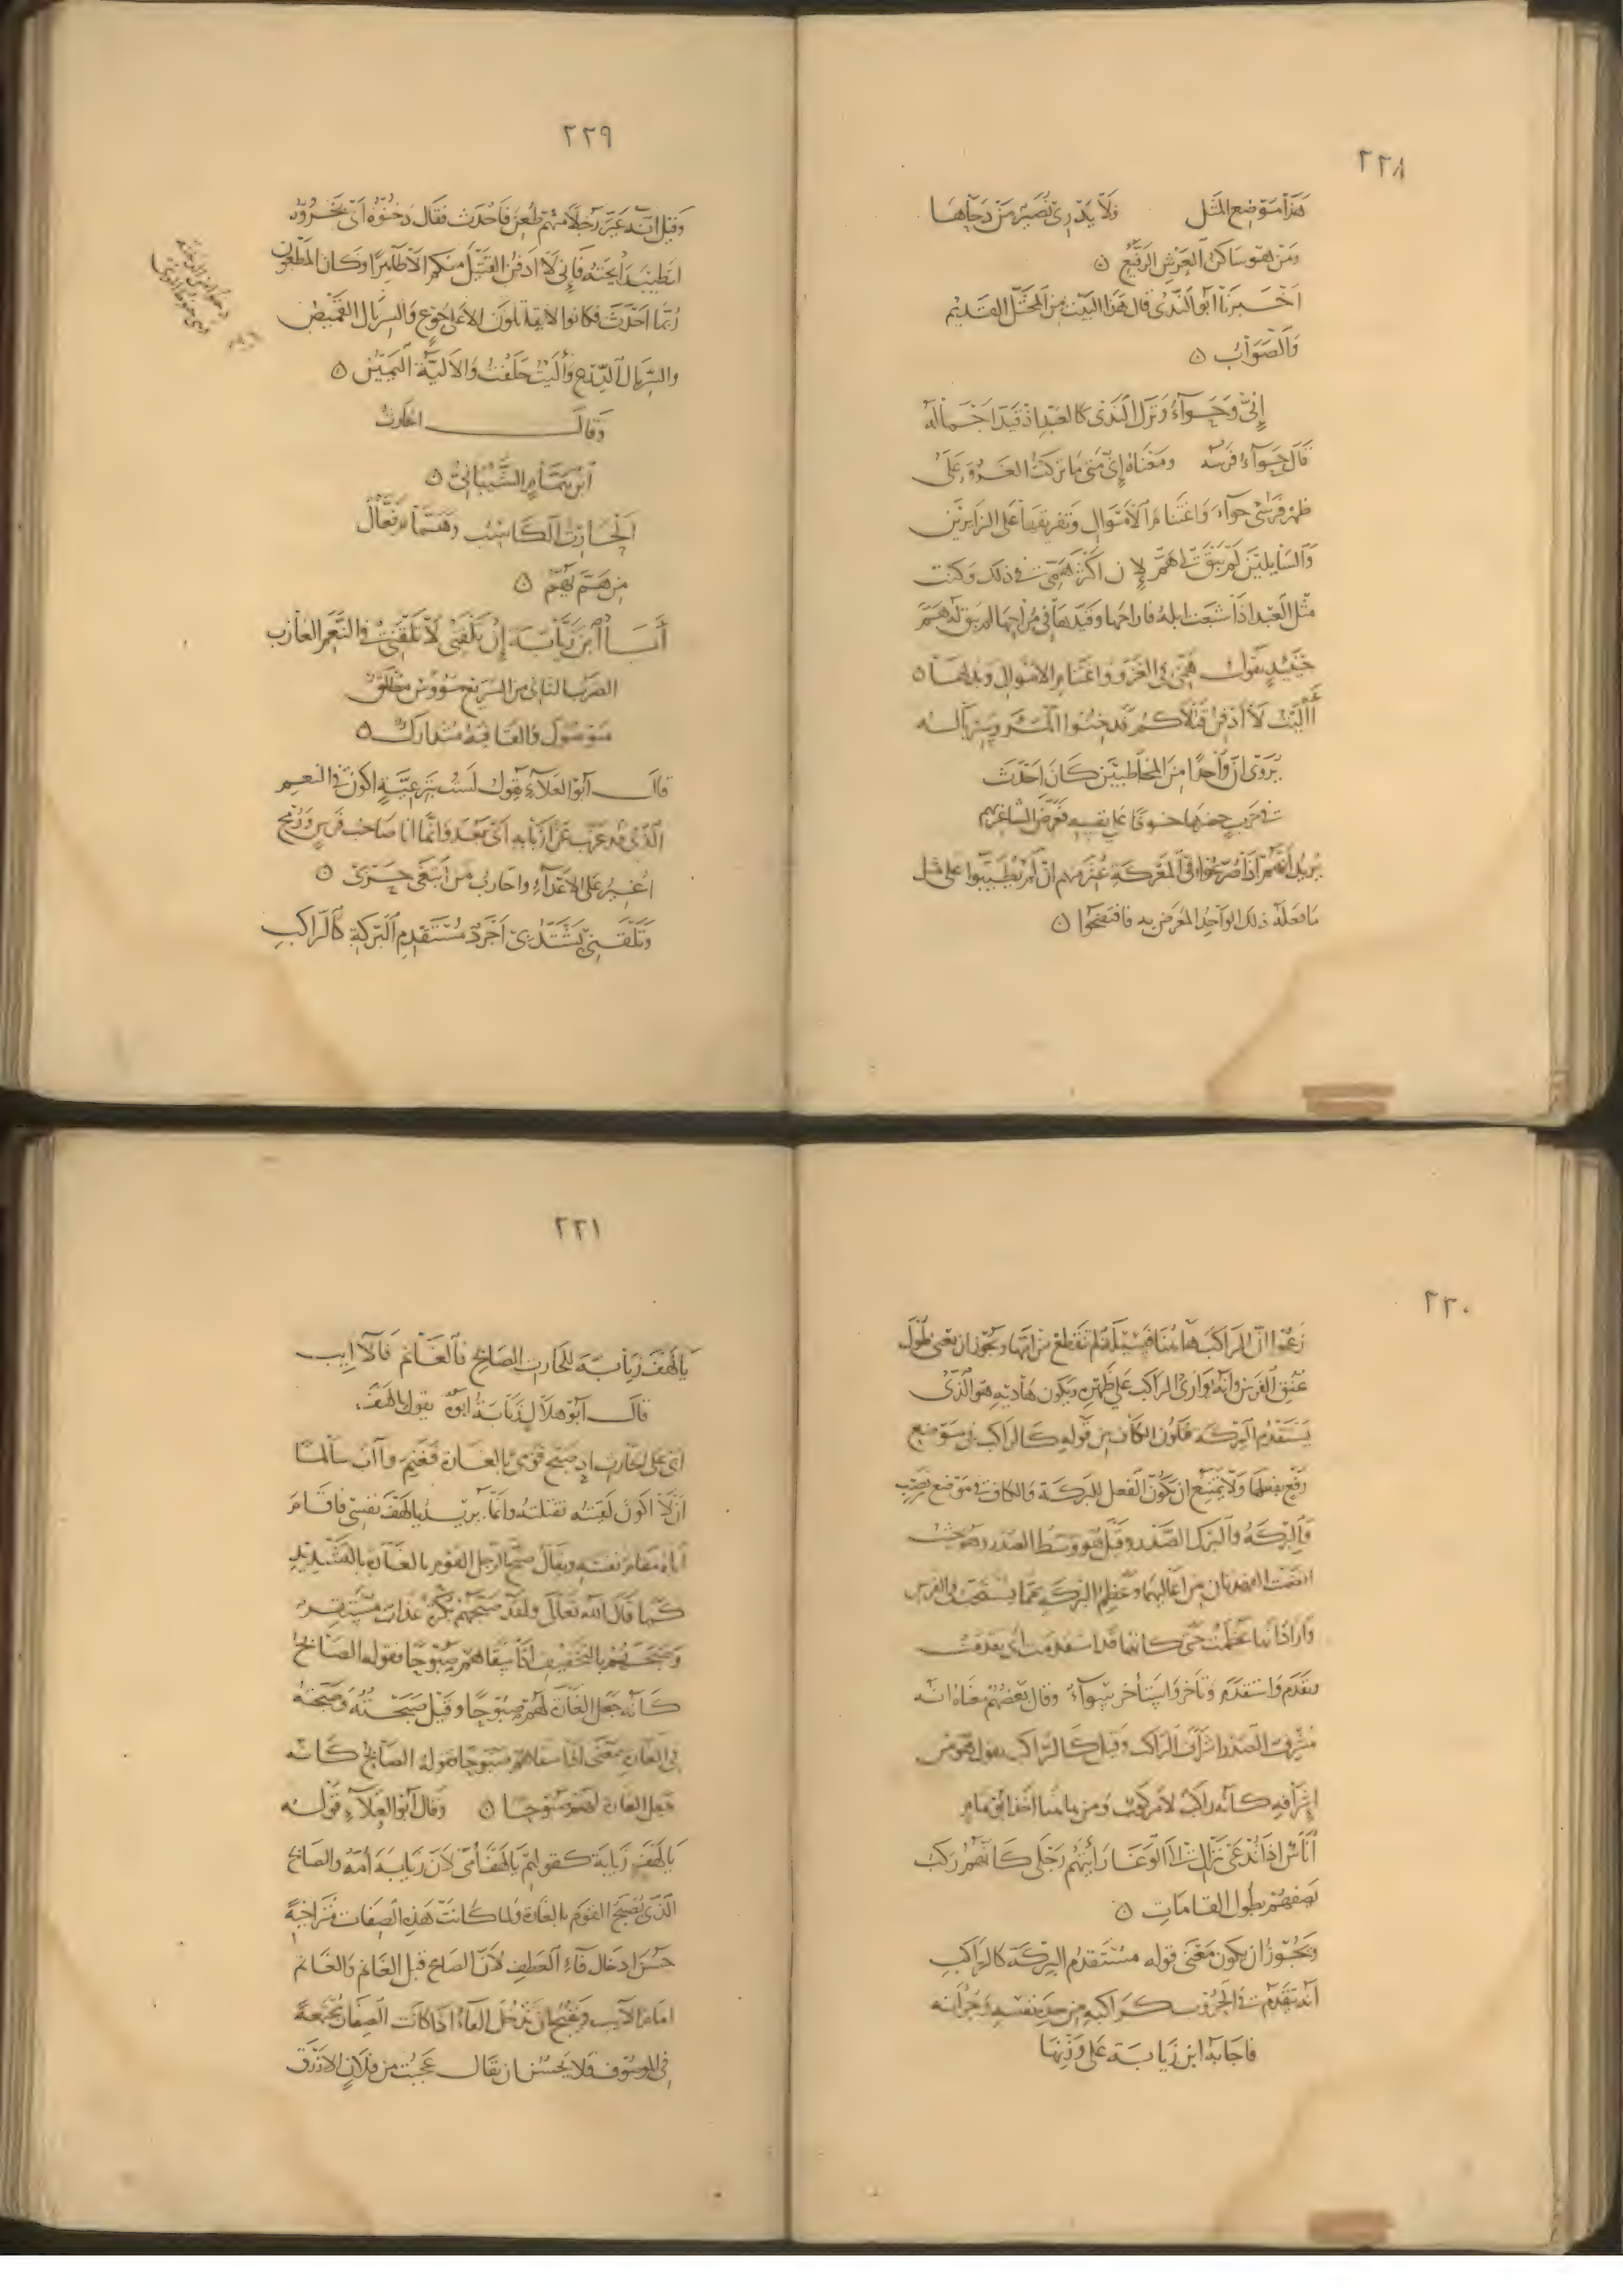 ٢٢٨
هذا موضع المثل ولا يدري نصير من دحاها
ومن هو ساكن العرش الرفيع ه
اخبرنا ابو الندى قال هذا البيت من المختل القديم
والصواب ه
إني وحواء وترك الندى كالعبد اذ قيد اجماله
قال حواء فرسه ومعناه إني متى ما تركت الغزو على
ظهر فرسي حواء واغتنام الأموال وتفريقها على الزايرين
والسايلين لم يبق لي هم لان اكثر همي في ذلك وكنت
مثل العبد اذا شبعت ابله فاراحها وقيدها في مراحها لم يبق له هم
حينئذ يقول همي في الغزو واغتنام الاموال وبذلها ه
آليت لا أدفن قتلاكم فدخنوا المرء وسرباله
يروى ان واحدا من المخاطبين كان احدث
في حرب حضرها خوفا على نفسه فعرض الشاعر بهم
يريد انهم اذا صرعوا في المعركة منهم ان لم يطيبوا على مثل
ما فعله ذلك الواحد المعرض به فافتضحوا ه
٢٢٩
وقيل انه عير رجلا منهم طعن فاحدث فقال دخنوه اي بخروه
لتطيب رايحته فاني لا ادفن القتيل منكم الا طاهرا وكان المطعون
ربما احدث فكانوا لا يقاتلون الا على جوع والسربال القميص
والسربال الدرع وآليت حلفت والألية اليمين ه
وقال الحارث
ابن همام الشيباني ه
الحارث الكاسب وهمام فعال
من هم يهم ه
أيا ابن زيابة إن تلقني لا تلقني في النعم العازب
الضرب الثاني من السريع مطلق
موصول والقافية متدارك ه
قال ابو العلاء يقول لست براعية اكون في النعم
الذي قد عزب عن اربابه اي بعد وانما انا صاحب فرس ورمح
اغير على الاعداء واحارب من ابتغى حربي ه
وتلقني يشتد بي اجرد مستقدم البركة كالراكب
٢٣٠
زعموا ان الراكب هاهنا تنقطع من امها ويجوز ان يعني طول
عنق الفرس وانه يواري الراكب على ظهره ويكون هاديه هو الذي
يستقدم البركة فتكون الكاف من قوله كالراكب في موضع
رفع بفعلها ولا يمتنع ان يكون الفعل للبركة والكاف في موضع نصب
والبركة والبرك الصدر وقيل هو وسط الصدر حيث
انضمت الفهدتان من اعاليهما وعظم البركة مما يستحب في الفرس
وأراد انها عظمت حتى كانها قد استقدمت اي تقدمت
وتقدم واستقدم وتأخر واستأخر سواء وقال بعضهم معناه انه
مشرف الصدر اشراف الراكب وقيل كالراكب يقول هو من
إشرافه كانه راكب لا مركوب
أناس اذا تدعى نزال لدى الوغا رأيتهم رجلى كأنهم ركب
تصفهم بطول القامات ه
ويجوز ان يكون معنى قوله مستقدم البركة كالراكب
انه يتقدم في الحروب كراكبه من حدة نفسه وجرأته
فاجابه ابن زيابة على وزنها
٢٣١
يا لهف زيابة للحارث الصابح فالغانم فالآيب
قال ابو هلال زيابة ابوه يقول يا لهف
ابي على الحارث اذ صبح قومي بالغارة فغنم وآب سالما
ان لا اكون لقيته فقتلته وانما يريد يا لهف نفسي فاقام
اباه مقام نفسه ويقال صبح الرجل القوم بالغارة بالتشديد
كما قال الله تعالى ولقد صبحهم بكرة عذاب مستقر
وصبحهم بالتخفيف اذا سقاهم صبوحا فقوله الصابح
كانه جعل الغارة لهم صبوحا وقيل صبحته وصبحته
في الغارة بمعنى اذا سقاهم صبوحا فقوله الصابح كانه
جعل الغارة لهم صبوحا ه وقال ابو العلاء قوله
يا لهف زيابة كقولهم يا لهف أمي لان زيابة امه والصابح
الذي يصبح القوم بالغارة ولما كانت هذه الصفات متراخية
حسن ادخال فاء العطف لان الصابح قبل الغانم والغانم
امام الآيب وقبيح ان تدخل الفاء اذا كانت الصفات مجتمعة
في الموصوف فلا يحسن ان يقال عجبت من فلان الازرق